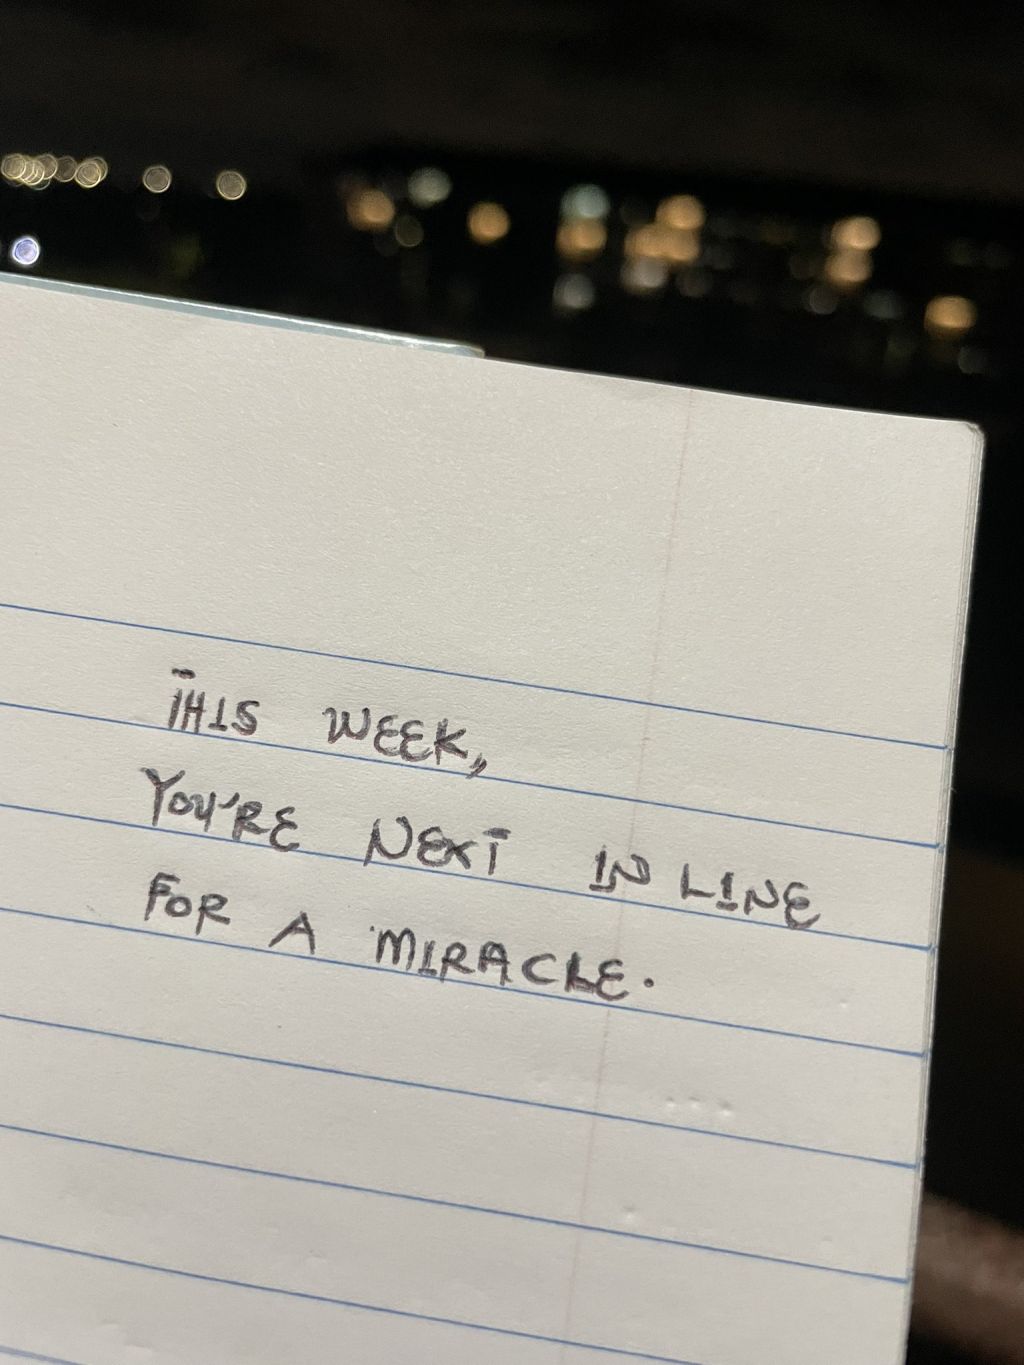 THIS WEEK,
YOU'RE NEXT IN LINE
FOR A MIRACLE.